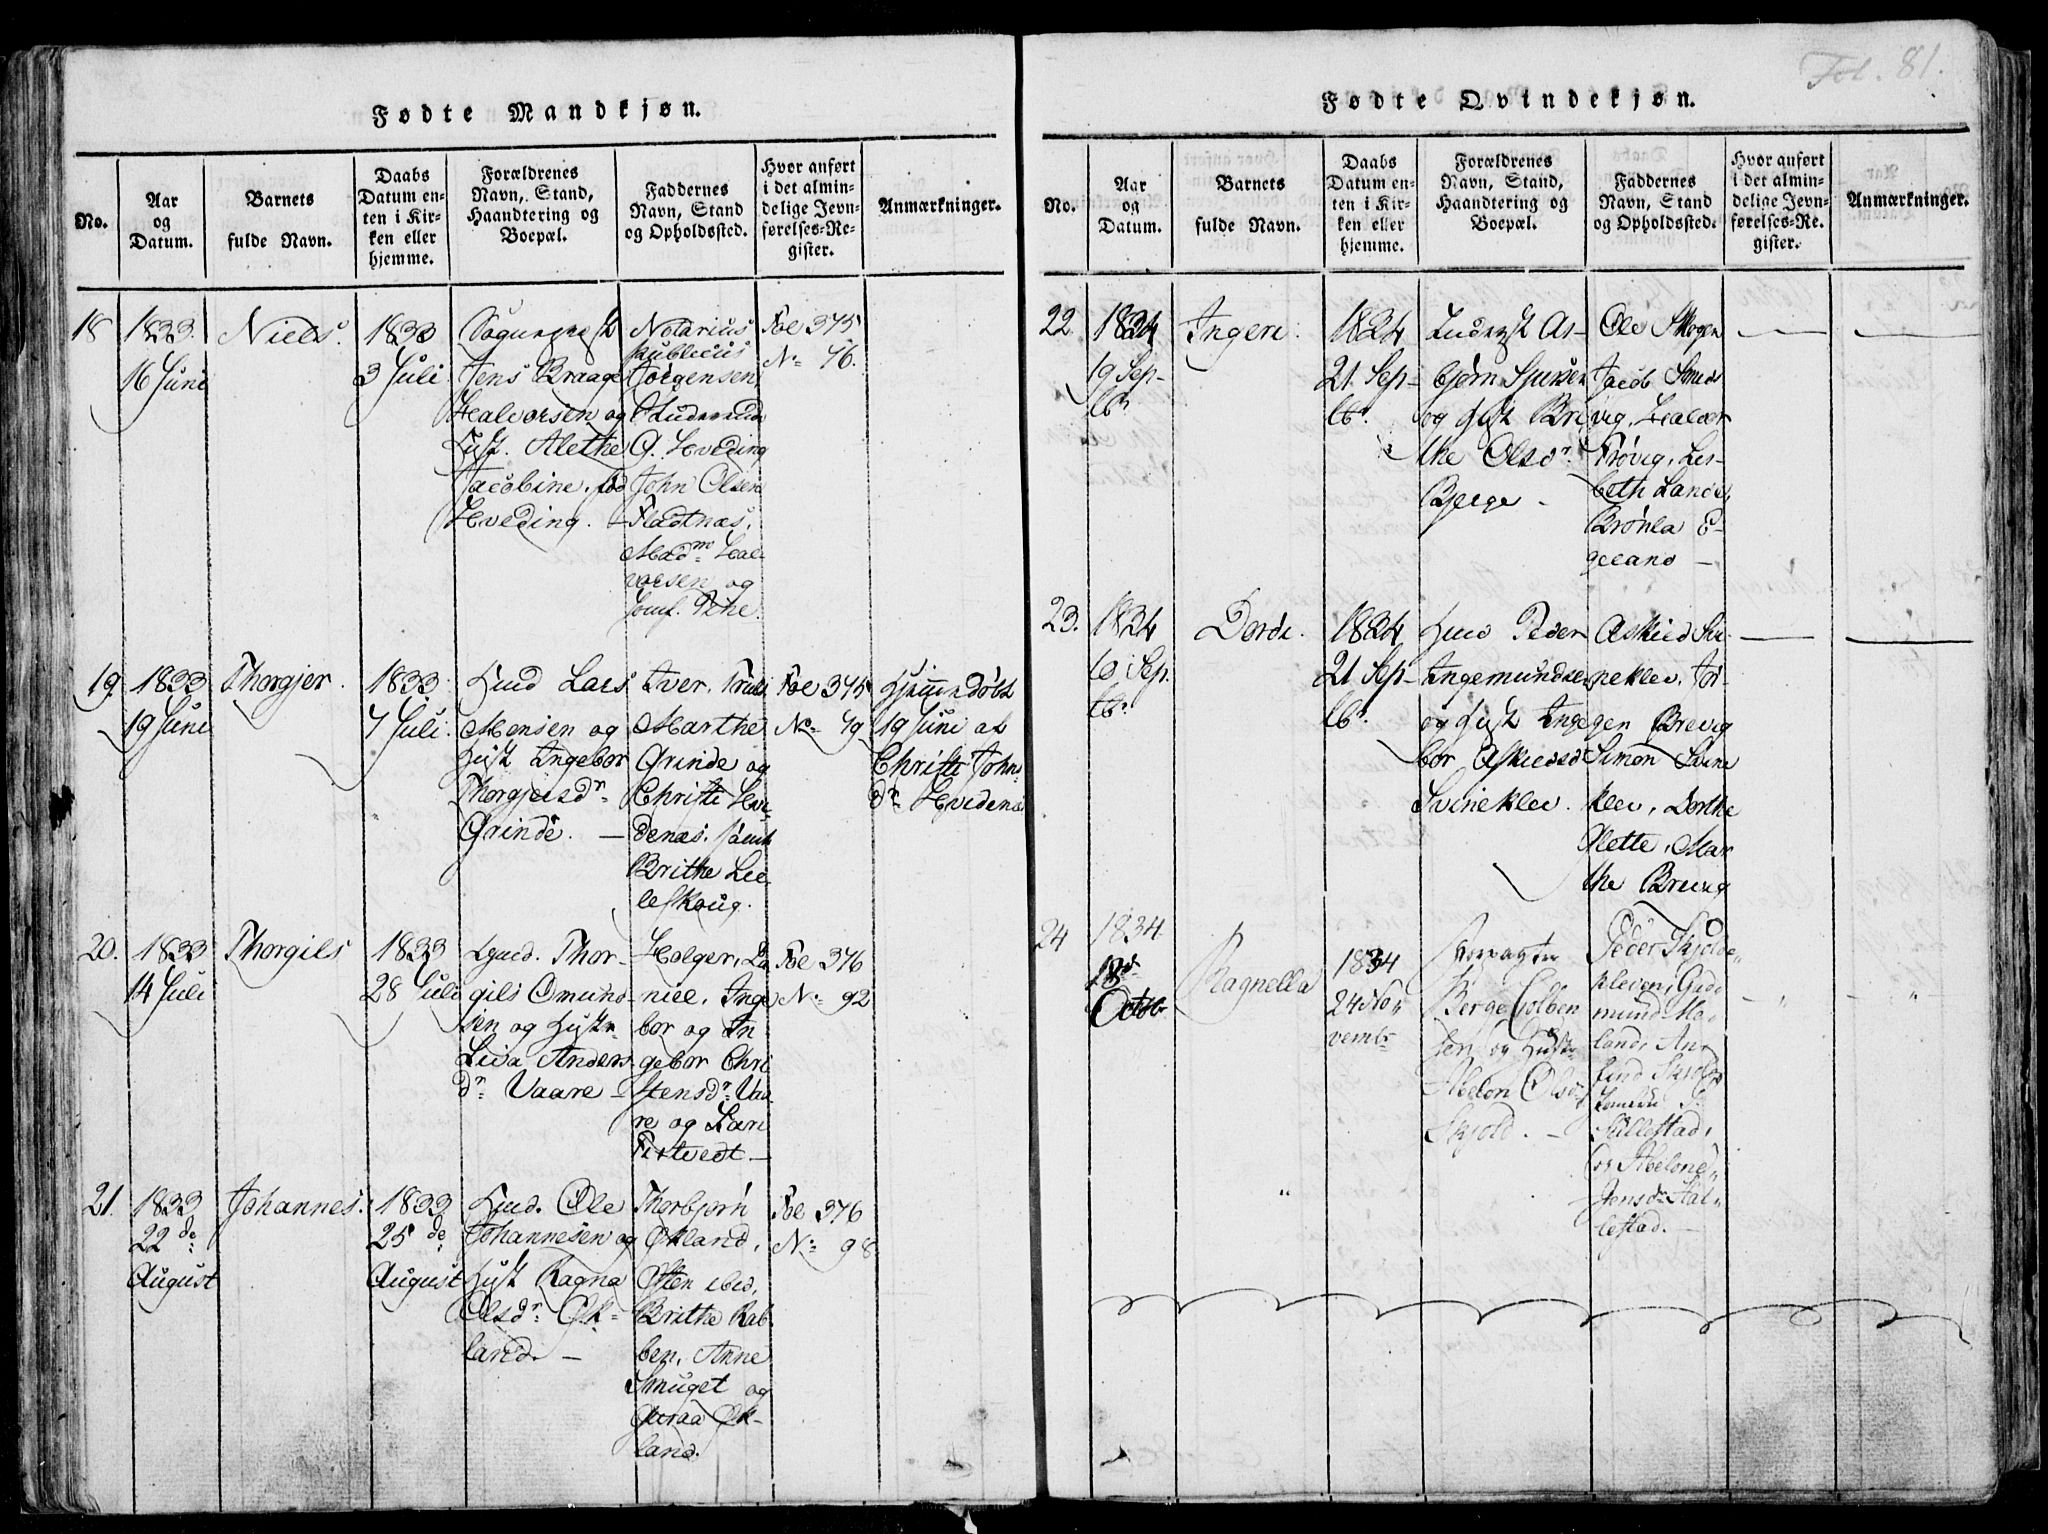 Fol. 81.
Fødte Mandkjøn.
No.
Aar
og
Datum.
Barnets
fulde Navn.
Daabs
Datum en-
ten i Kir-
ken eller
hjemme.
Forældrenes
Navn, Stand,
Haandtering og
Boepæl.
Faddernes
Navn, Stand
og Opholdssted.
Hvor anført
i det almin-
delige Jevn-
førelses-Re-
gister.
Anmærkninger.
18
1833.
16 Juni
Niels.
1833
3 Juli
Jens Braage
Halvorsen og
Hust. Alethe
Jacobine, fød
Hveding. –
Notarius
publicus
Jörgensen,
O. Hveding
John Olsen
Fladtnæs,
Mad.me Hal-
vorsen og
Jomf. Pihe.
Fol 375
No 76.
19
1833
19 Juni
Thorgjer.
1833
7 Juli
Huusmd Lars
Monsen og
Hust Ingebor
Thorgjersdr
Grinde. –
Iver, Truls,
Marthe
Grinde og
Christi Hve-
denæs, samt
Brithe Lee-
leskoug.
Fol 375
No 79
Hjemmedøbt
19 Juni af
Christi John-
dr Hvedenæs
20.
1833
14 Juli
Thorgils
1833
28 Juli
Thor-
gils Omund-
sen og Hustr
Lisa Anders-
dr Vaare –
Holger, Da-
niel, Inge-
bor og In-
gebor Chri-
stensdr Vaa-
re og Kari
Tistvedt –
Fol 376
No 92
21.
1833
22de
August
Johannes.
1833
25de
August
Huusmd. Ole
Johannesen og
Hust Ragna
Olsdr Øk-
land. –
Thorbjørn
Økland,
Østen ibid,
Brithe Rab-
ben, Anne
Smuget og
Guroa Øk-
land.
Fol 376
No 98
Fødte Qvindekjøn.
No.
Aar
og
Datum.
Barnets
fulde Navn.
Daabs
Datum en-
ten i Kir-
ken eller
hjemme.
Forældrenes
Navn, Stand,
Haandtering og
Boepæl.
Faddernes
Navn, Stand
og Opholdssted.
Hvor anført
i det almin-
delige Jevn-
førelses-Re-
gister.
Anmærkninger.
22
1834
19 Sep-
tbr
Ingeri.
1834
21 Sep-
tbr.
As-
bjørn Sjursen
og Hust Bri-
the Olsdr.
Bjerge –
Ole Skogen
Jacob Smeds-
vig, Halvor
Trøvig, Lis-
beth Lande,
Brønla E-
geland –
23.
1834
6 Sep-
tbr
Dordi.
1834
21 Sep-
tbr.
Huusmd Peder
Ingemundsen
og Hust Inge-
bor Askieldsd
Svineklev.
Askield Svi-
neklev, Tor-
gen Brevig
Simon Svine-
klev, Dorthe
Mette, Mar-
the Brevig
24
1834
18de
Octobr
Ragnella
1834
24 No-
vembr
Forpagter
Berge Colben-
sen og Hustr
Abelon Olsdr
Skjold. –
Peder Skjolde-
kleven, Gud-
mund Mæ-
land, An-
find Skjold
Sællestad,
og Abelone
Jensdr Hal-
lestad. –